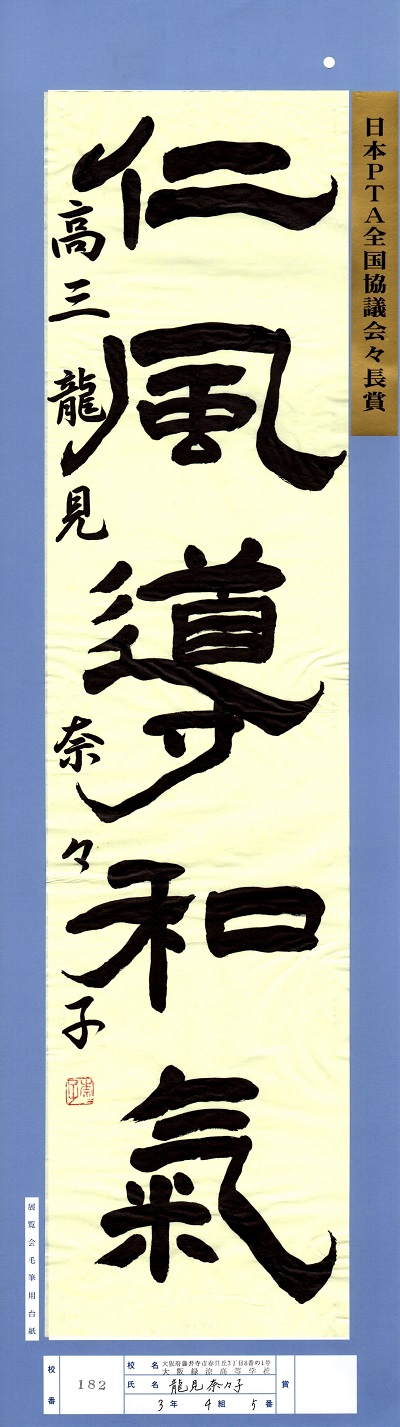 日本PTA全国協議会々長賞
仁風導和氣
高三 龍見 奈々子
展覧会毛筆用台紙
校番 182
校名 大阪府藤井寺市春日丘3丁目8番の1号
大阪緑涼高等学校
氏名 龍見奈々子
3年 4組 5番
賞